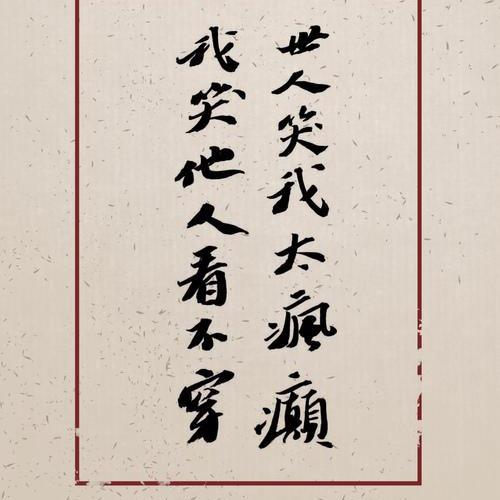 世人笑我太瘋癲
我笑他人看不穿